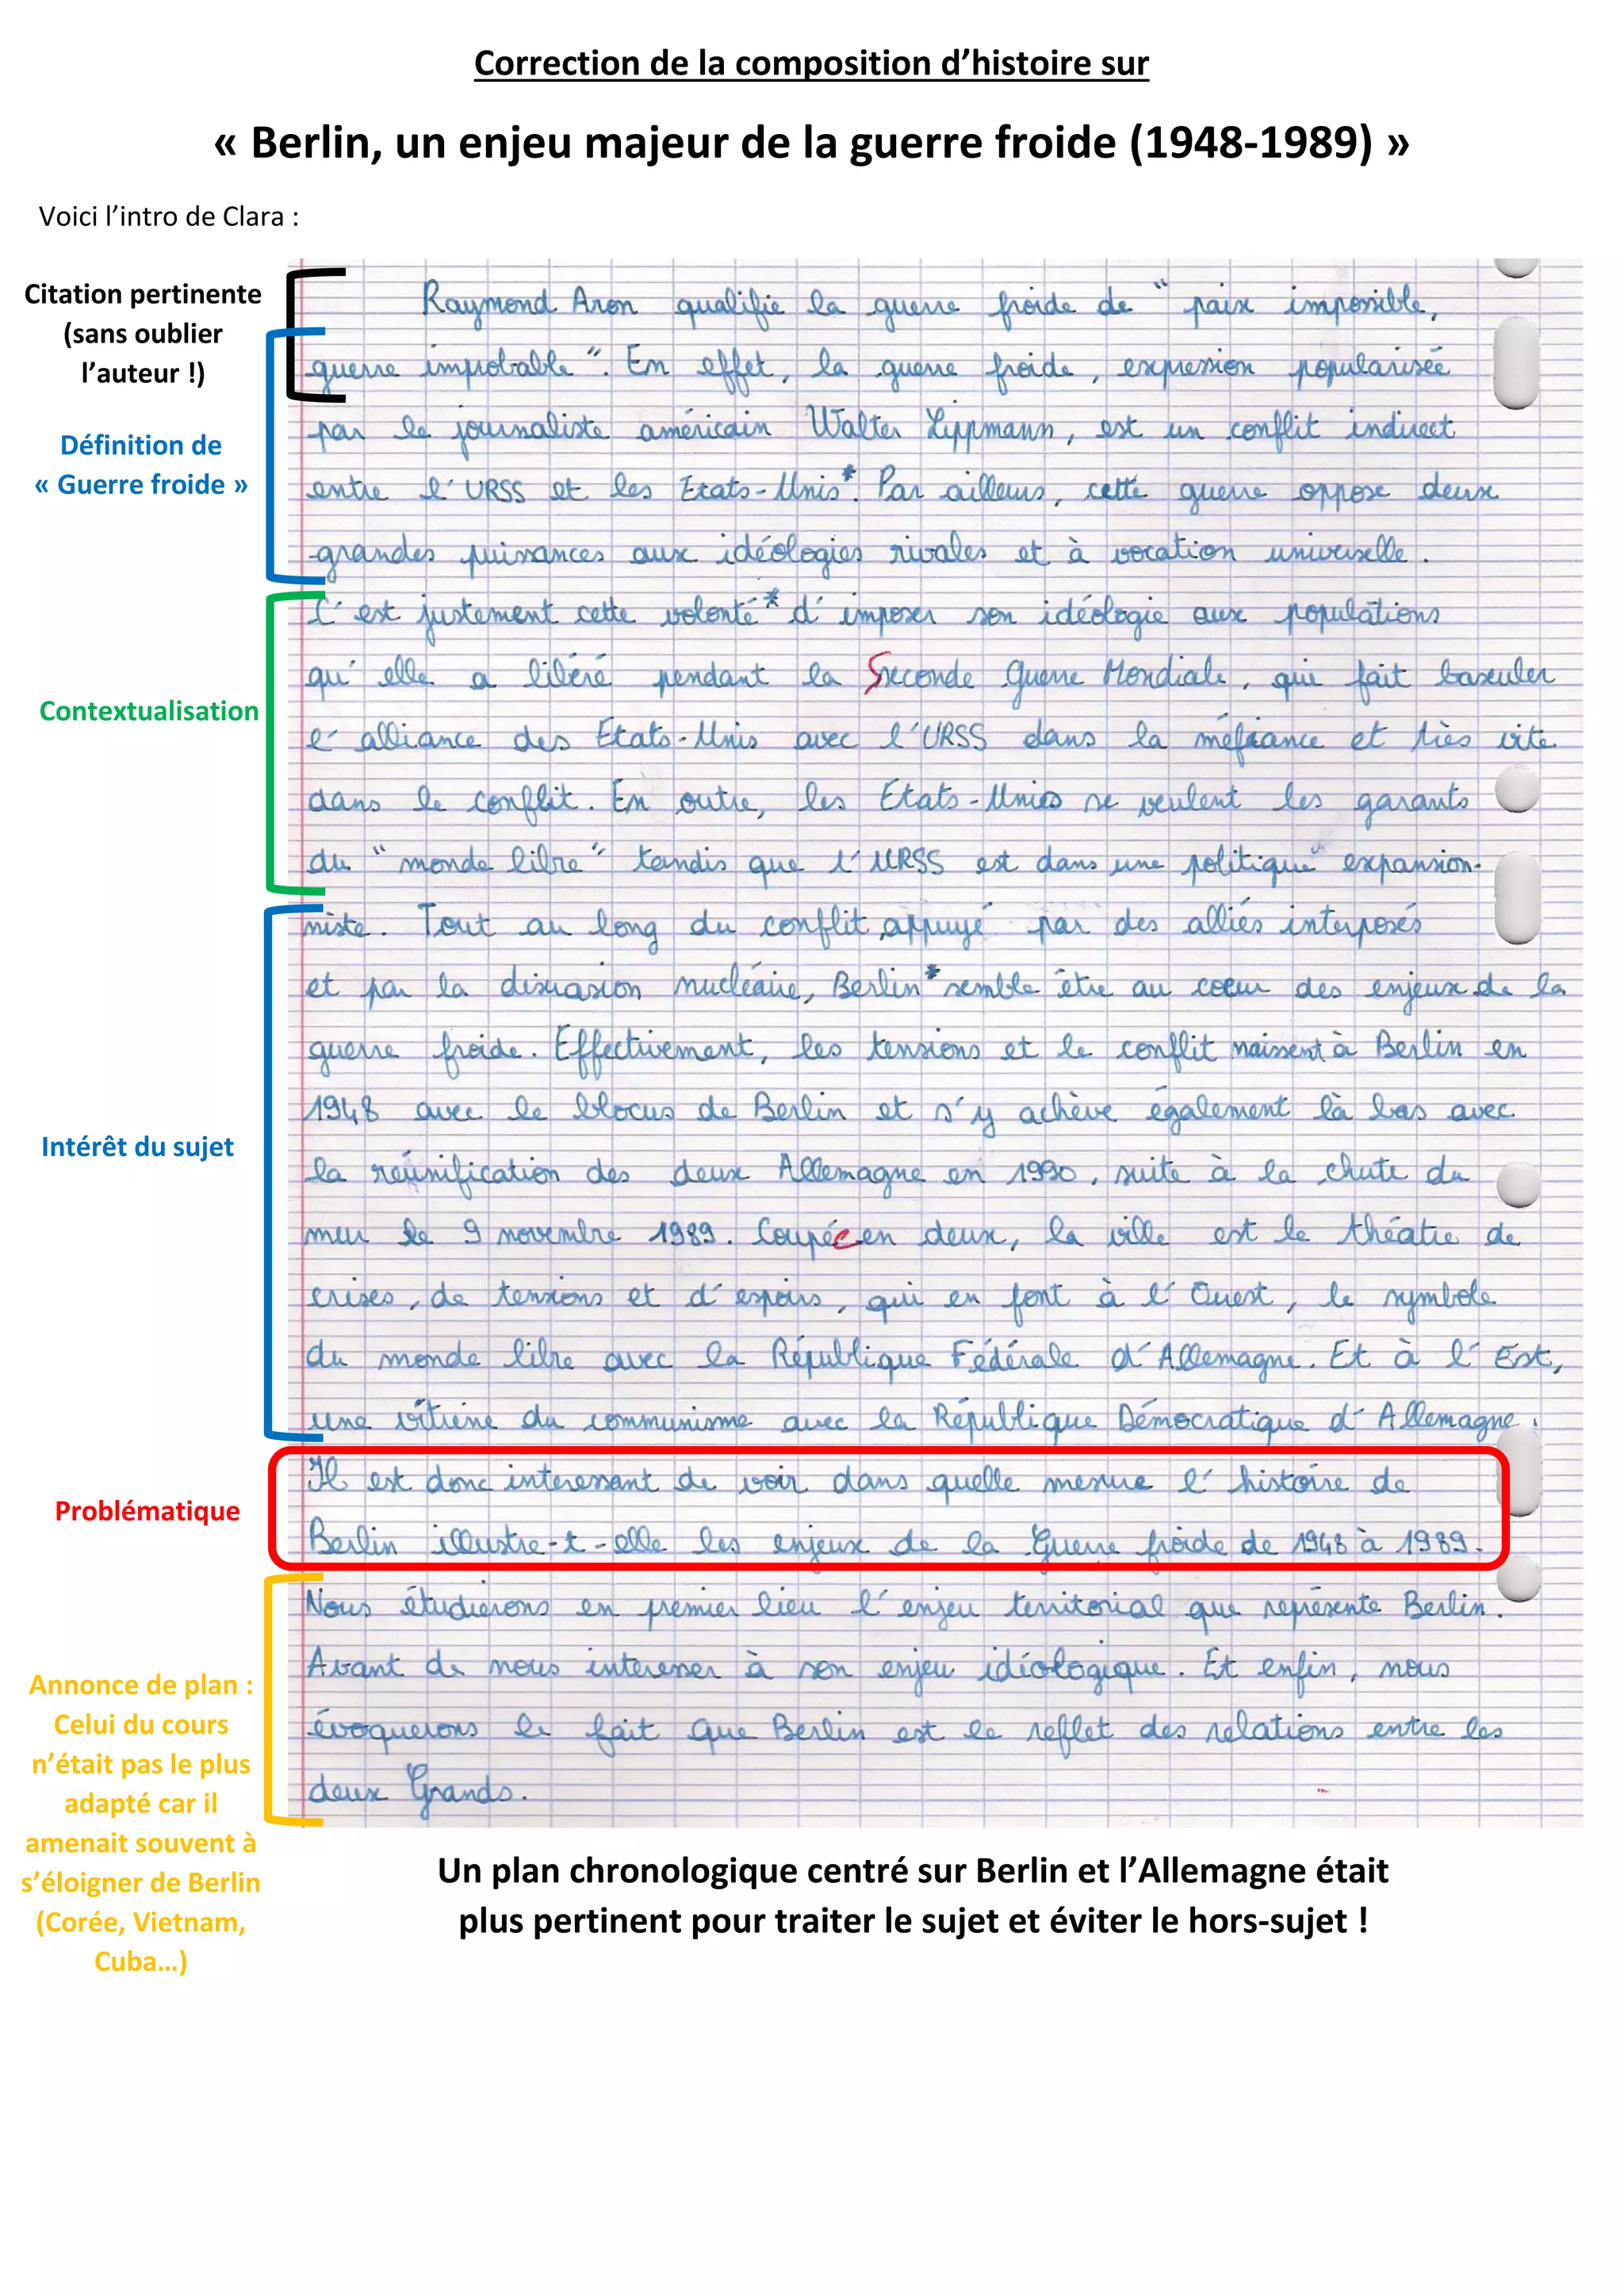 Correction de la composition d’histoire sur
« Berlin, un enjeu majeur de la guerre froide (1948-1989) »
Voici l’intro de Clara :
Citation pertinente
(sans oublier
l’auteur !)
Définition de
« Guerre froide »
Contextualisation
Intérêt du sujet
Problématique
Annonce de plan :
Celui du cours
n’était pas le plus
adapté car il
amenait souvent à
s’éloigner de Berlin
(Corée, Vietnam,
Cuba…)
Raymond Aron qualifie la guerre froide de " paix impossible,
guerre improbable ". En effet, la guerre froide, expression popularisée
par le journaliste américain Walter Lippmann, est un conflit indirect
entre l'URSS et les Etats-Unis*. Par ailleurs, cette guerre oppose deux
grandes puissances aux idéologies rivales et à vocation universelle.
C'est justement cette volonté* d'imposer son idéologie aux populations
qu'elle a libéré pendant la Seconde Guerre Mondiale, qui fait basculer
l'alliance des Etats-Unis avec l'URSS dans la méfiance et très vite
dans le conflit. En outre, les Etats-Unis se veulent les garants
du " monde libre " tandis que l'URSS est dans une politique expansion-
niste. Tout au long du conflit appuyé par des alliés interposés
et par la dissuasion nucléaire, Berlin* semble être au coeur des enjeux de la
guerre froide. Effectivement, les tensions et le conflit naissent à Berlin en
1948 avec le blocus de Berlin et s'y achève également là bas avec
la réunification des deux Allemagne en 1990, suite à la chute du
mur le 9 novembre 1989. Coupée en deux, la ville est le théatre de
crises, de tensions et d'espoirs, qui en font à l'Ouest, le symbole
du monde libre avec la République Fédérale d'Allemagne. Et à l'Est,
une vitrine du communisme avec la République Démocratique d'Allemagne.
Il est donc interessant de voir dans quelle mesure l'histoire de
Berlin illustre-t-elle les enjeux de la Guerre froide de 1948 à 1989.
Nous étudierons en premier lieu l'enjeu territorial que représente Berlin.
Avant de nous interesser à son enjeu idéologique. Et enfin, nous
évoquerons le fait que Berlin est le reflet des relations entre les
deux Grands.
Un plan chronologique centré sur Berlin et l’Allemagne était
plus pertinent pour traiter le sujet et éviter le hors-sujet !